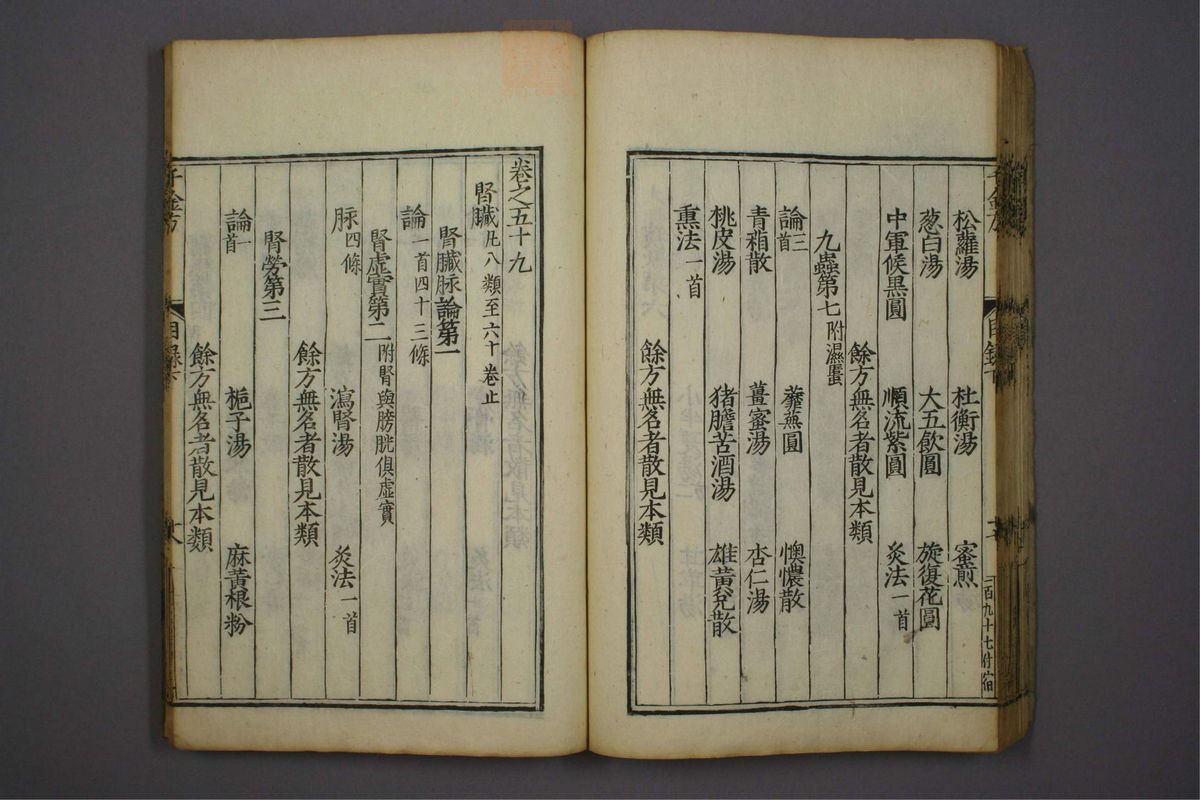 松蘿湯 杜衡湯 蜜煎
葱白湯 大五飲圓 旋復花圓
中軍候黑圓 順流紫圓 灸法一首
餘方無名者散見本類
九蟲第七附濕䘌
論三首 蘼蕪圓 懊憹散
青葙散 薑蜜湯 杏仁湯
桃皮湯 猪膽苦酒湯 雄黃兌散
熏法一首
餘方無名者散見本類
卷之五十九
腎臟凡八類至六十卷止
腎臟脉論第一
論一首四十三條
腎虛實第二附腎與膀胱俱虛實
脉四條 瀉腎湯 灸法一首
餘方無名者散見本類
腎勞第三
論一首 梔子湯 麻黃根粉
餘方無名者散見本類